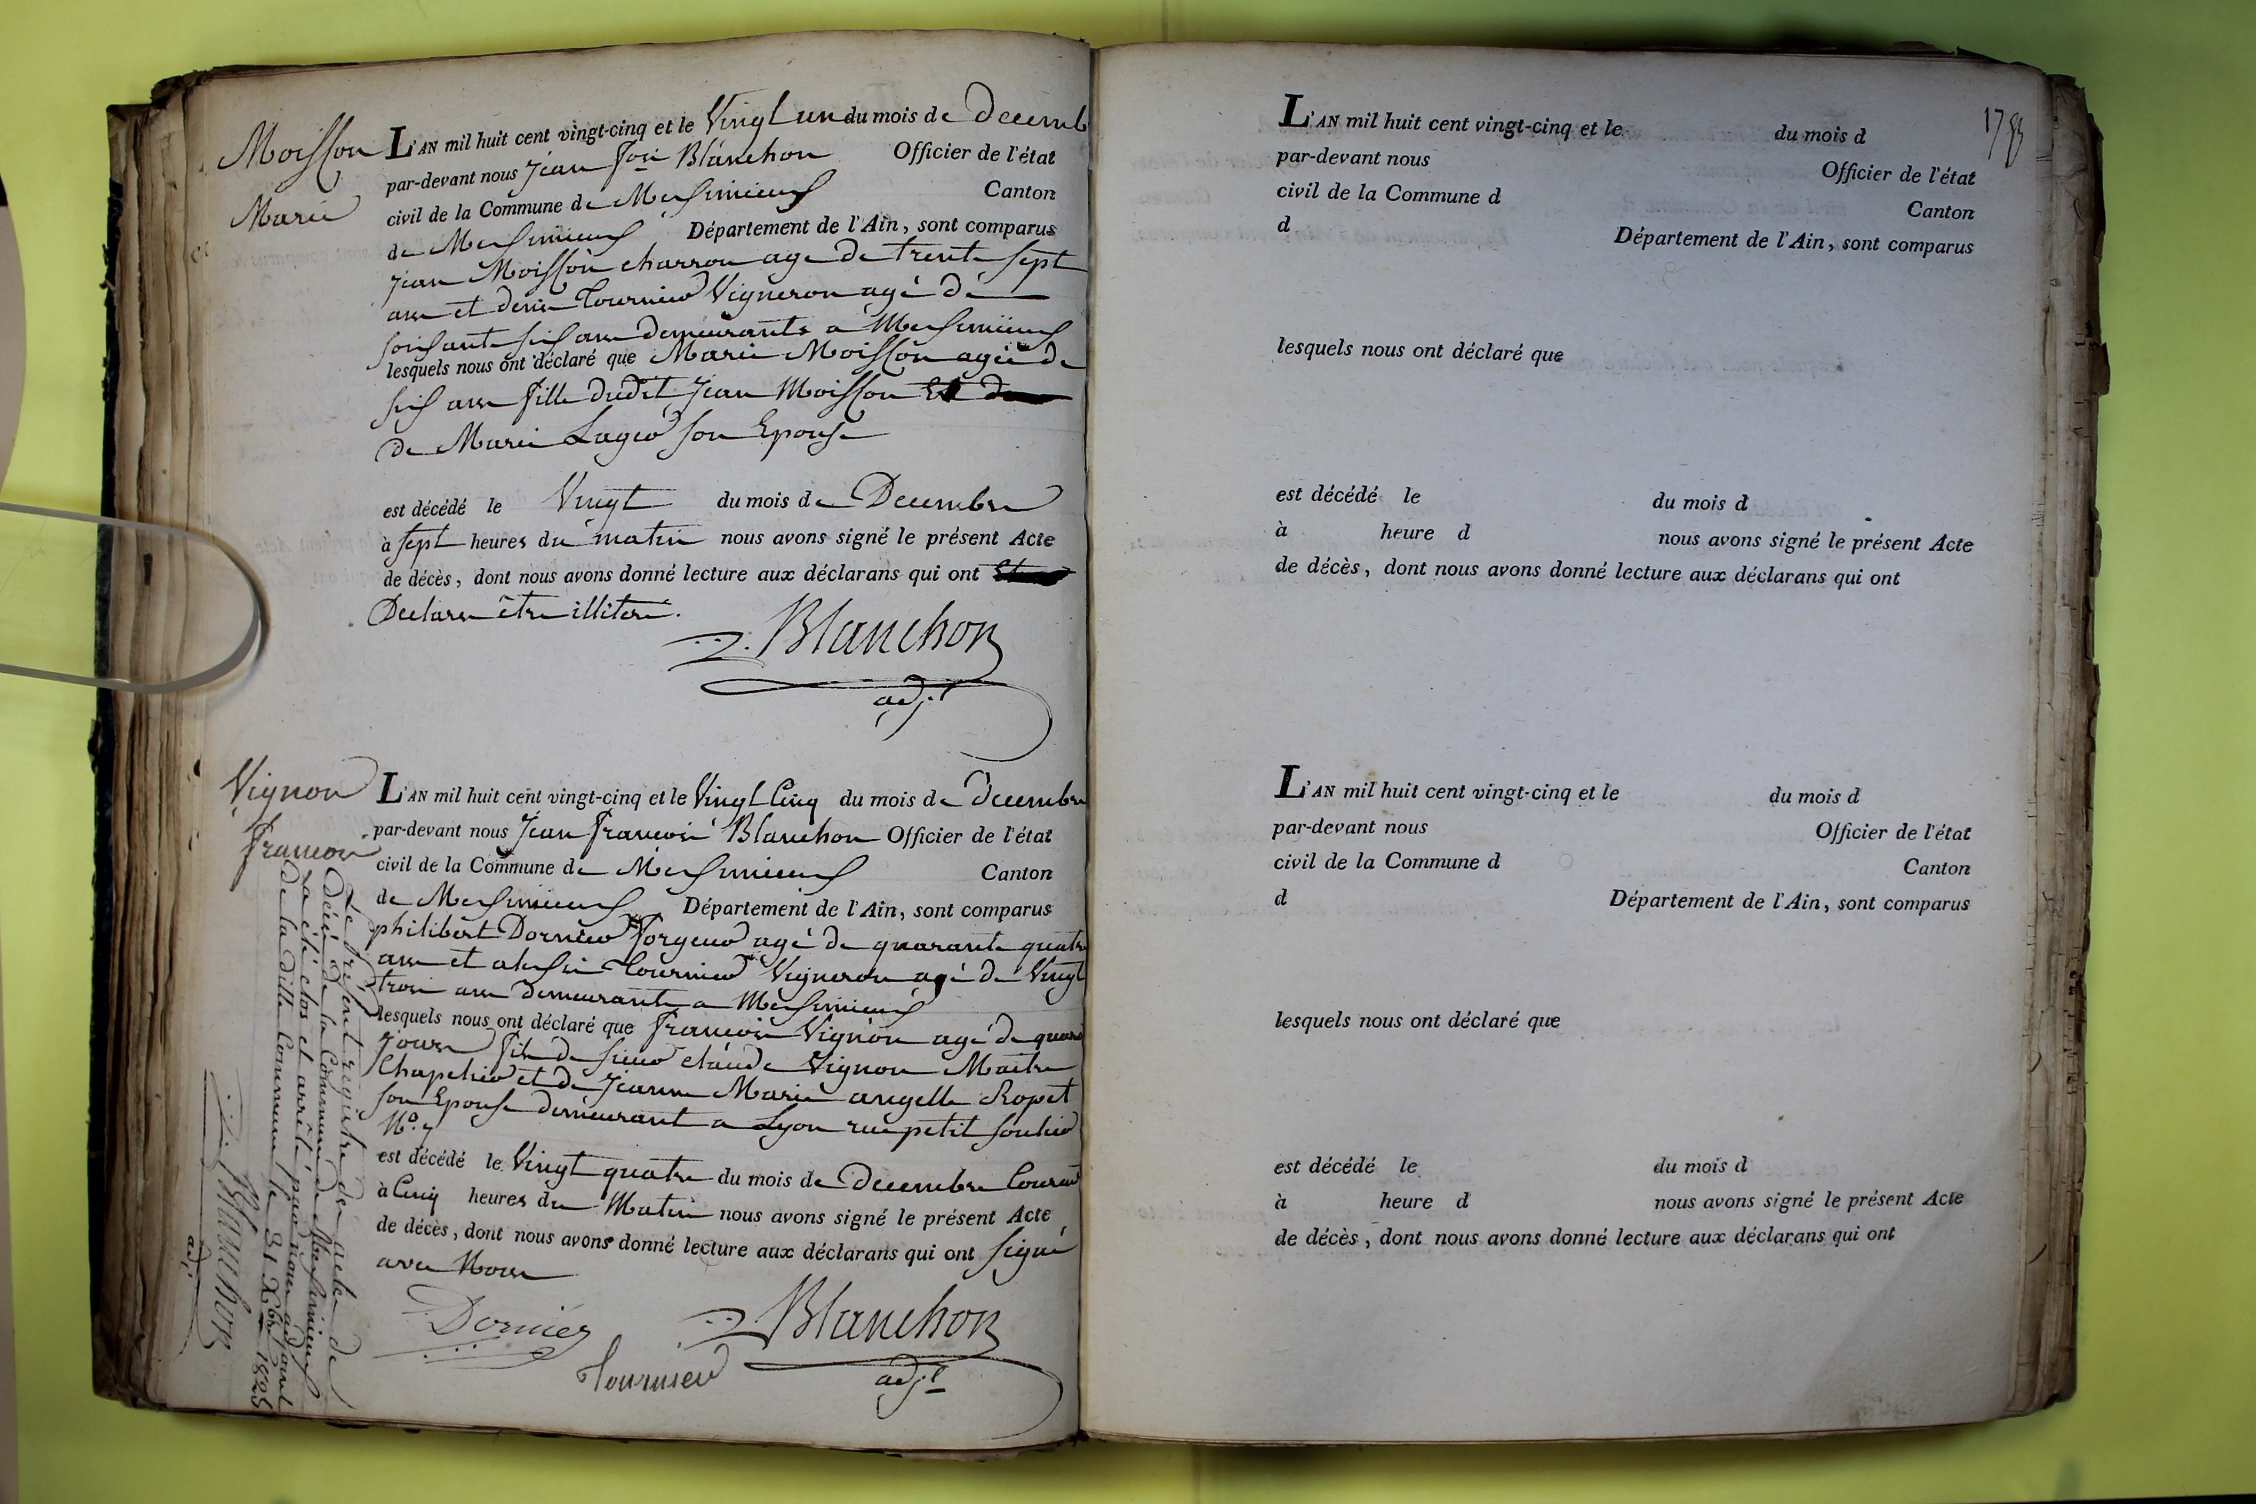 Moisson
Marie
L'AN mil huit cent vingt-cinq et le Vingt un du mois de Decemb
par-devant nous Jean fois Blanchon Officier de l'état
civil de la Commune de Meximieux Canton
de Meximieux Département de l'Ain, sont comparus
Jean Moisson charron age de trente sept
ans et denis Tournier Vigneron agé de
soixante six ans demeurants a Meximieux
lesquels nous ont déclaré que Marie Moisson agée de
six ans fille dudit Jean Moisson Et de
de Marie Lager son Epouse
est décédé le Vingt du mois de Decembre
à sept heures du matin nous avons signé le présent Acte
de décès, dont nous avons donné lecture aux déclarans qui ont
Declaré être illitéré.
Blanchon
adjt
Vignon
francois
L'AN mil huit cent vingt-cinq et le Vingt Cinq du mois de Decembre
par-devant nous Jean francois Blanchon Officier de l'état
civil de la Commune de Meximieux Canton
de Meximieux Département de l'Ain, sont comparus
philibert Dornier forgeur agé de quarante quatre
ans et alexis Tournier Vigneron agé de Vingt
trois ans demeurants a Meximieux
lesquels nous ont déclaré que francois Vignon agé de quinze
jours fils de sieur claude Vignon Maitre
Chapelier et de Jeanne Marie angelle Ropet
son Epouse demeurant a Lyon rue petit soulier
No. 7
est décédé le Vingt quatre du mois de Decembre Courant
à Cinq heures du Matin nous avons signé le présent Acte
de décès, dont nous avons donné lecture aux déclarans qui ont signé
avec Nous
Dornier
Blanchon
adjt
Tournier
Le présent registre des actes de
décés de la Commune de Meximieux
a été clos et arrêté par nous adjoint
de la ditte Commune le 31 Xbre 1825
Blanchon
adjt
178
L'AN mil huit cent vingt-cinq et le du mois d
par-devant nous Officier de l'état
civil de la Commune d Canton
d Département de l'Ain, sont comparus
lesquels nous ont déclaré que
est décédé le du mois d
à heure d nous avons signé le présent Acte
de décès, dont nous avons donné lecture aux déclarans qui ont
L'AN mil huit cent vingt-cinq et le du mois d
par-devant nous Officier de l'état
civil de la Commune d Canton
d Département de l'Ain, sont comparus
lesquels nous ont déclaré que
est décédé le du mois d
à heure d nous avons signé le présent Acte
de décès, dont nous avons donné lecture aux déclarans qui ont